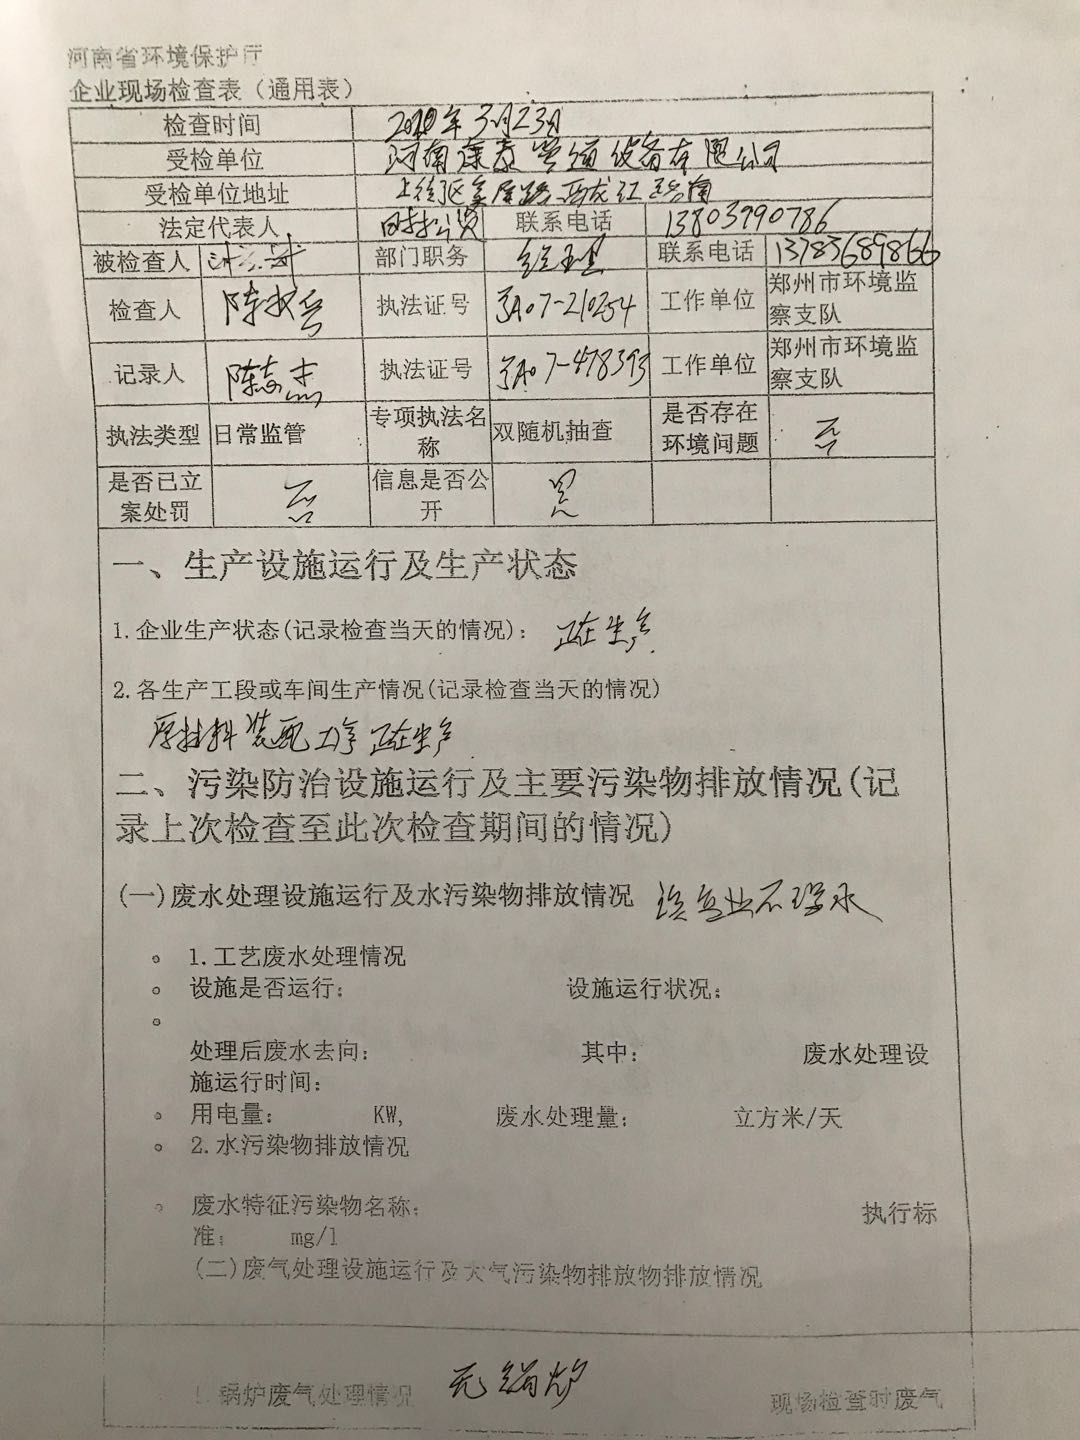 河南省环境保护厅
企业现场检查表（通用表）
检查时间 3月23日
受检单位 河南康泰管道设备有限公司
受检单位地址 上街区
法定代表人 联系电话 13803990786
被检查人 部门职务 经理 联系电话 13783689866
检查人 执法证号 豫A07-210254 工作单位 郑州市环境监
察支队
记录人 陈志杰 执法证号 豫A07-478393 工作单位 郑州市环境监
察支队
执法类型 日常监管 专项执法名
称 双随机抽查 是否存在
环境问题 否
是否已立
案处罚 否 信息是否公
开 是
一、生产设施运行及生产状态
1.企业生产状态(记录检查当天的情况)： 正在生产
2.各生产工段或车间生产情况(记录检查当天的情况)
原材料装配工序正在生产
二、污染防治设施运行及主要污染物排放情况(记
录上次检查至此次检查期间的情况)
(一)废水处理设施运行及水污染物排放情况 该企业不 水
1.工艺废水处理情况
设施是否运行： 设施运行状况：
处理后废水去向： 其中： 废水处理设
施运行时间：
用电量： KW, 废水处理量： 立方米/天
2.水污染物排放情况
废水特征污染物名称： 执行标
准： mg/l
(二)废气处理设施运行及大气污染物排放物排放情况
1.锅炉废气处理情况 无锅炉 现场检查时废气